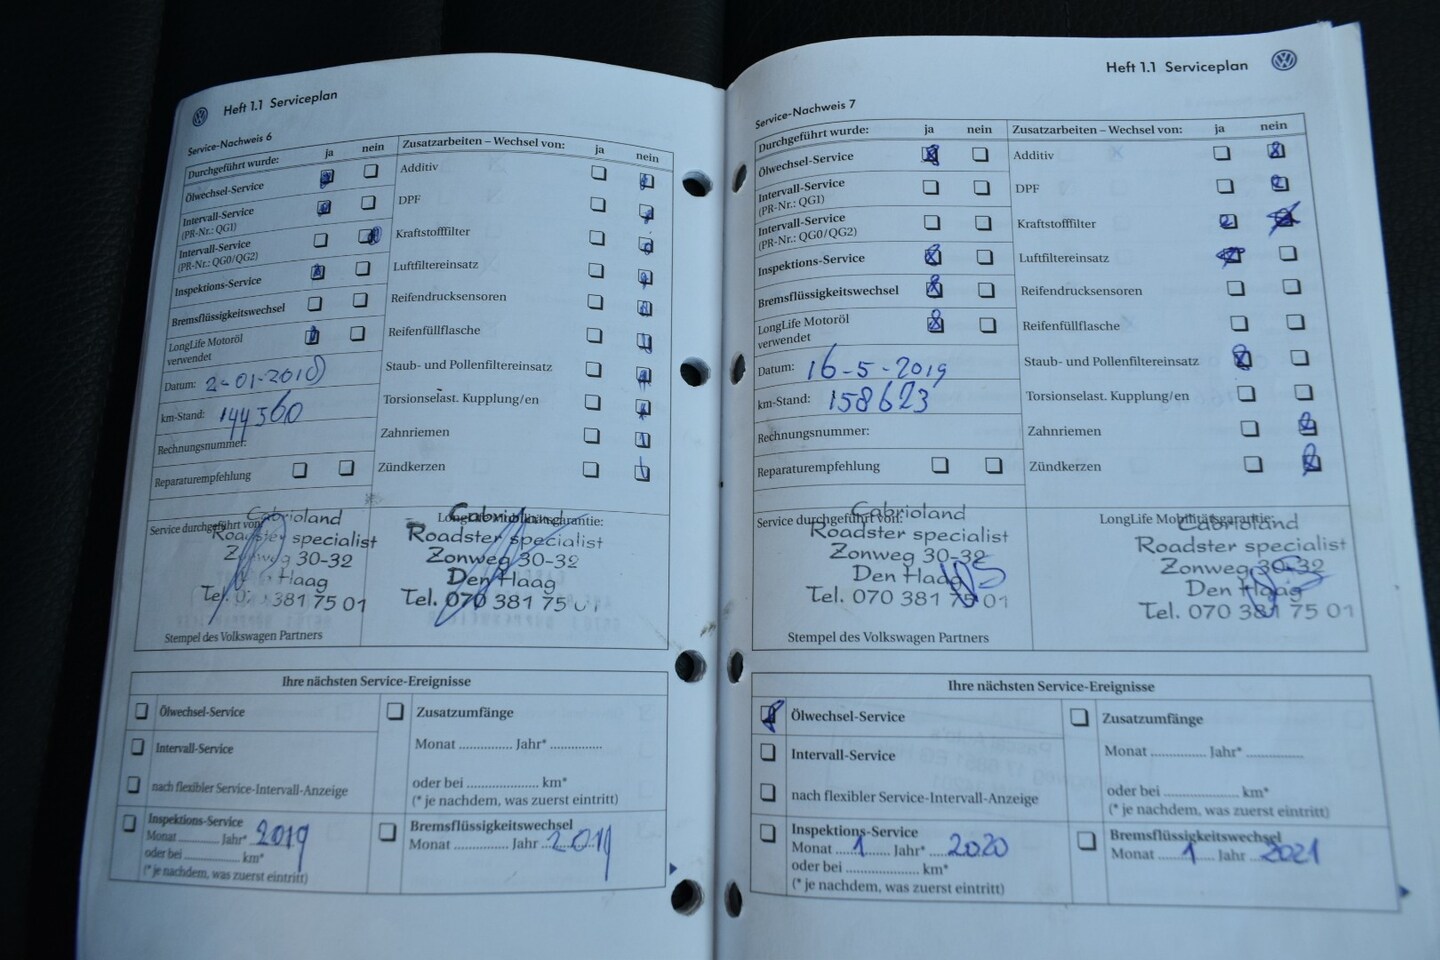 Heft 1.1 Serviceplan
Service-Nachweis 6
Durchgeführt wurde: ja nein
Ölwechsel-Service
Intervall-Service
(PR-Nr.: QG1)
Intervall-Service
(PR-Nr.: QG0/QG2)
Inspektions-Service
Bremsflüssigkeitswechsel
LongLife Motoröl
verwendet
Datum: 2-01-2018
km-Stand: 144560
Rechnungsnummer:
Reparaturempfehlung
Zusatzarbeiten – Wechsel von: ja nein
Additiv
DPF
Kraftstofffilter
Luftfiltereinsatz
Reifendrucksensoren
Reifenfüllflasche
Staub- und Pollenfiltereinsatz
Torsionselast. Kupplung/en
Zahnriemen
Zündkerzen
Service durchgeführt von:
Cabrioland
Roadster specialist
Zonweg 30-32
Den Haag
Tel. 070 381 75 01
Stempel des Volkswagen Partners
LongLife Mobilitätsgarantie:
Cabrioland
Roadster specialist
Zonweg 30-32
Den Haag
Tel. 070 381 75 01
Ihre nächsten Service-Ereignisse
Ölwechsel-Service
Intervall-Service
nach flexibler Service-Intervall-Anzeige
Inspektions-Service
Monat ........... Jahr* 2019
oder bei ................ km*
(* je nachdem, was zuerst eintritt)
Zusatzumfänge
Monat .............. Jahr* ..............
oder bei ................... km*
(* je nachdem, was zuerst eintritt)
Bremsflüssigkeitswechsel
Monat .............. Jahr 2019
Heft 1.1 Serviceplan
Service-Nachweis 7
Durchgeführt wurde: ja nein
Ölwechsel-Service
Intervall-Service
(PR-Nr.: QG1)
Intervall-Service
(PR-Nr.: QG0/QG2)
Inspektions-Service
Bremsflüssigkeitswechsel
LongLife Motoröl
verwendet
Datum: 16-5-2019
km-Stand: 158623
Rechnungsnummer:
Reparaturempfehlung
Zusatzarbeiten – Wechsel von: ja nein
Additiv
DPF
Kraftstofffilter
Luftfiltereinsatz
Reifendrucksensoren
Reifenfüllflasche
Staub- und Pollenfiltereinsatz
Torsionselast. Kupplung/en
Zahnriemen
Zündkerzen
Service durchgeführt von:
Cabrioland
Roadster specialist
Zonweg 30-32
Den Haag
Tel. 070 381 75 01
Stempel des Volkswagen Partners
LongLife Mobilitätsgarantie:
Cabrioland
Roadster specialist
Zonweg 30-32
Den Haag
Tel. 070 381 75 01
Ihre nächsten Service-Ereignisse
Ölwechsel-Service
Intervall-Service
nach flexibler Service-Intervall-Anzeige
Inspektions-Service
Monat 1 Jahr* 2020
oder bei ................... km*
(* je nachdem, was zuerst eintritt)
Zusatzumfänge
Monat .............. Jahr* ..............
oder bei ................... km*
(* je nachdem, was zuerst eintritt)
Bremsflüssigkeitswechsel
Monat 1 Jahr 2021